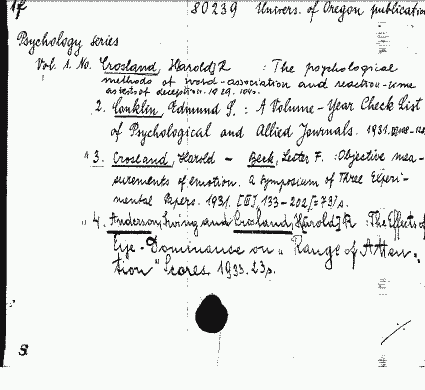 1f 80239 Univers. of Oregon publication
Psychology series
Vol. 1. No. Crosland, Harold R. : The psychological
methods of word-association and reaction-time
as tests of deception. 1929. 104 s.
2. Conklin, Edmund S. : A Volume-Year Check List
of Psychological and Allied Journals. 1931.
" 3. Crosland, Harold - Beck, Lester F. : Objective mea-
surements of emotion. A Symposium of Three Experi-
mental Papers. 1931. [III,] 133-202 [=73] s.
" 4. Anderson, Irving and Crosland, Harold R. The Effects of
Eye-Dominance on "Range of Atten-
tion" Scores 1933. 23 s.
S